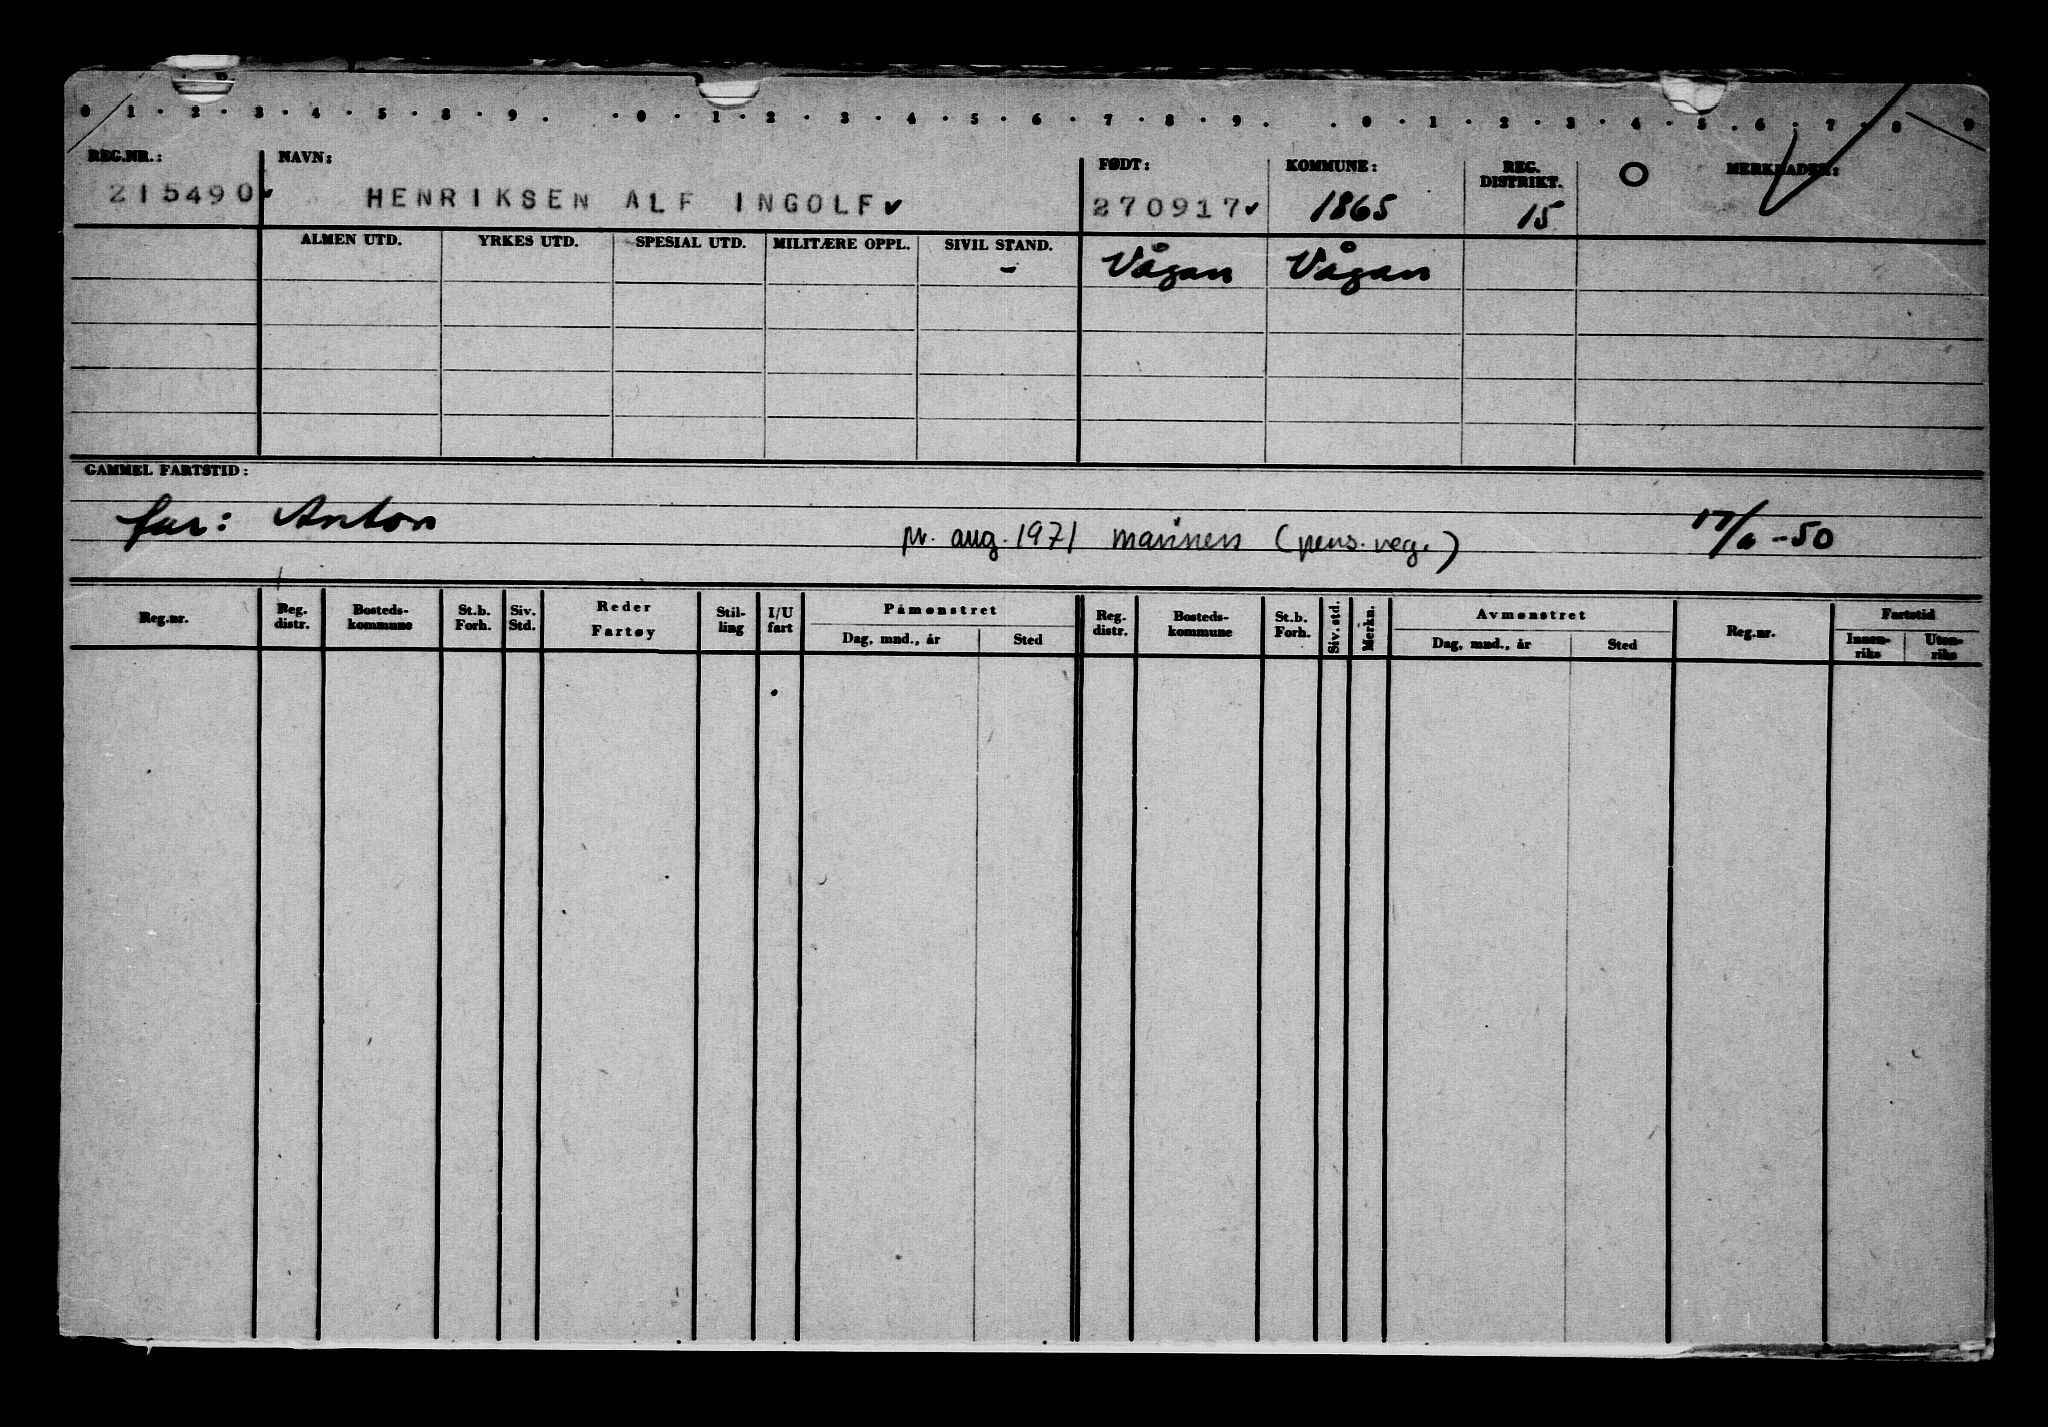 0 1 · 2 · 3 · 4 · 5 · 8 · 9 · · 0 · 1 · 2 · 3 · 4 · 5 · 6 · 7 · 8 · 9 · · 0 · 1 · 2 · 3 · 4 · 5 · 6 · 7 · 8 9
REG.NR.: NAVN: FØDT: KOMMUNE: REG. DISTRIKT. O MERKNADER:
215490 HENRIKSEN ALF INGOLF 270917 1865 15
ALMEN UTD. YRKES UTD. SPESIAL UTD. MILITÆRE OPPL. SIVIL STAND.
- Vågan Vågan
GAMMEL FARTSTID:
far: Anton pr. aug. 1971 marinen (pens. reg.) 17/6 -50
Reg.nr. Reg. distr. Bosteds-kommune St.b. Forh. Siv. Std. Reder Fartøy Stil-ling I/U fart Påmønstret Dag, mnd., år Sted Reg. distr. Bosteds-kommune St.b. Forh. Siv. std. Merkn. Avmønstret Dag, mnd., år Sted Reg.nr. Fartstid Innen-riks Uten-riks